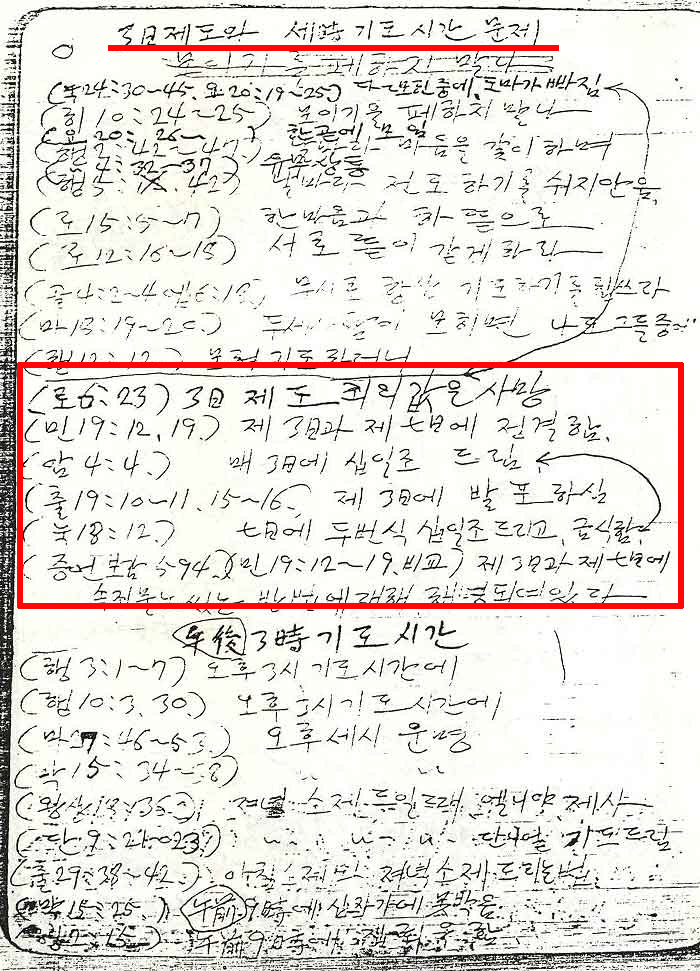 3日제도와 세時기도시간 문제
모이기를 폐하지 말라
(눅24:30~45, 요20:19~25) 다 모인중에, 도마가 빠짐
(히10:24~25) 모이기를 폐하지 말나
(요20:26~) 한곳에 모임
(행2:42~47) 마음을 같이하며
(행4:32~37) 유무상통
(행5: 42) 날마다 전도하기를 쉬지안음,
(로15:5~7) 한마음과 한뜻으로
(로12:16~18) 서로 뜻이 같게하라
(골4:2~4 엡6:18) 무시로 항상 기도하기를 힘쓰라
(마18:19~20) 두세 사람이 모히면 나도 그들중에
(행12:12) 모혀 기도하더니
(로6:23) 3日제도 죄의 값은 사망
(민19:12, 19.) 제3日과 제七日에 정결함.
(암4:4.) 매 3日에 십일조 드림
(출19:10~11. 15~16. 제3日에 발포하심
(눅18:12.) 七日에 두번식 십일조드리고, 금식함.
(증언보감 5-94.)(민19:12~19, 비교) 제3日과 제七日에
속죄문 있는 해명되여있다
午後 3時 기도시간
(행3:1~7) 오후3시 기도시간에
(행10:3, 30.) 오후3시기도시간에
(마27:46~53.) 오후세시 운명
(막15:34~38) 〃 〃
(왕상18:36~) 저녁 소제 드일 때 엘니야 제사
(단9:21 23) 〃 〃 〃 단니엘 기도드림
(출29:38~42.) 아침소제와 저녁소제 드리는법
(막15:25.) 午前9時에 십자가에 못박음
(행2:15) 午前9時에